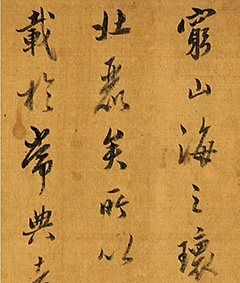 窮山海之瓌
壯麗矣所以
載於常典